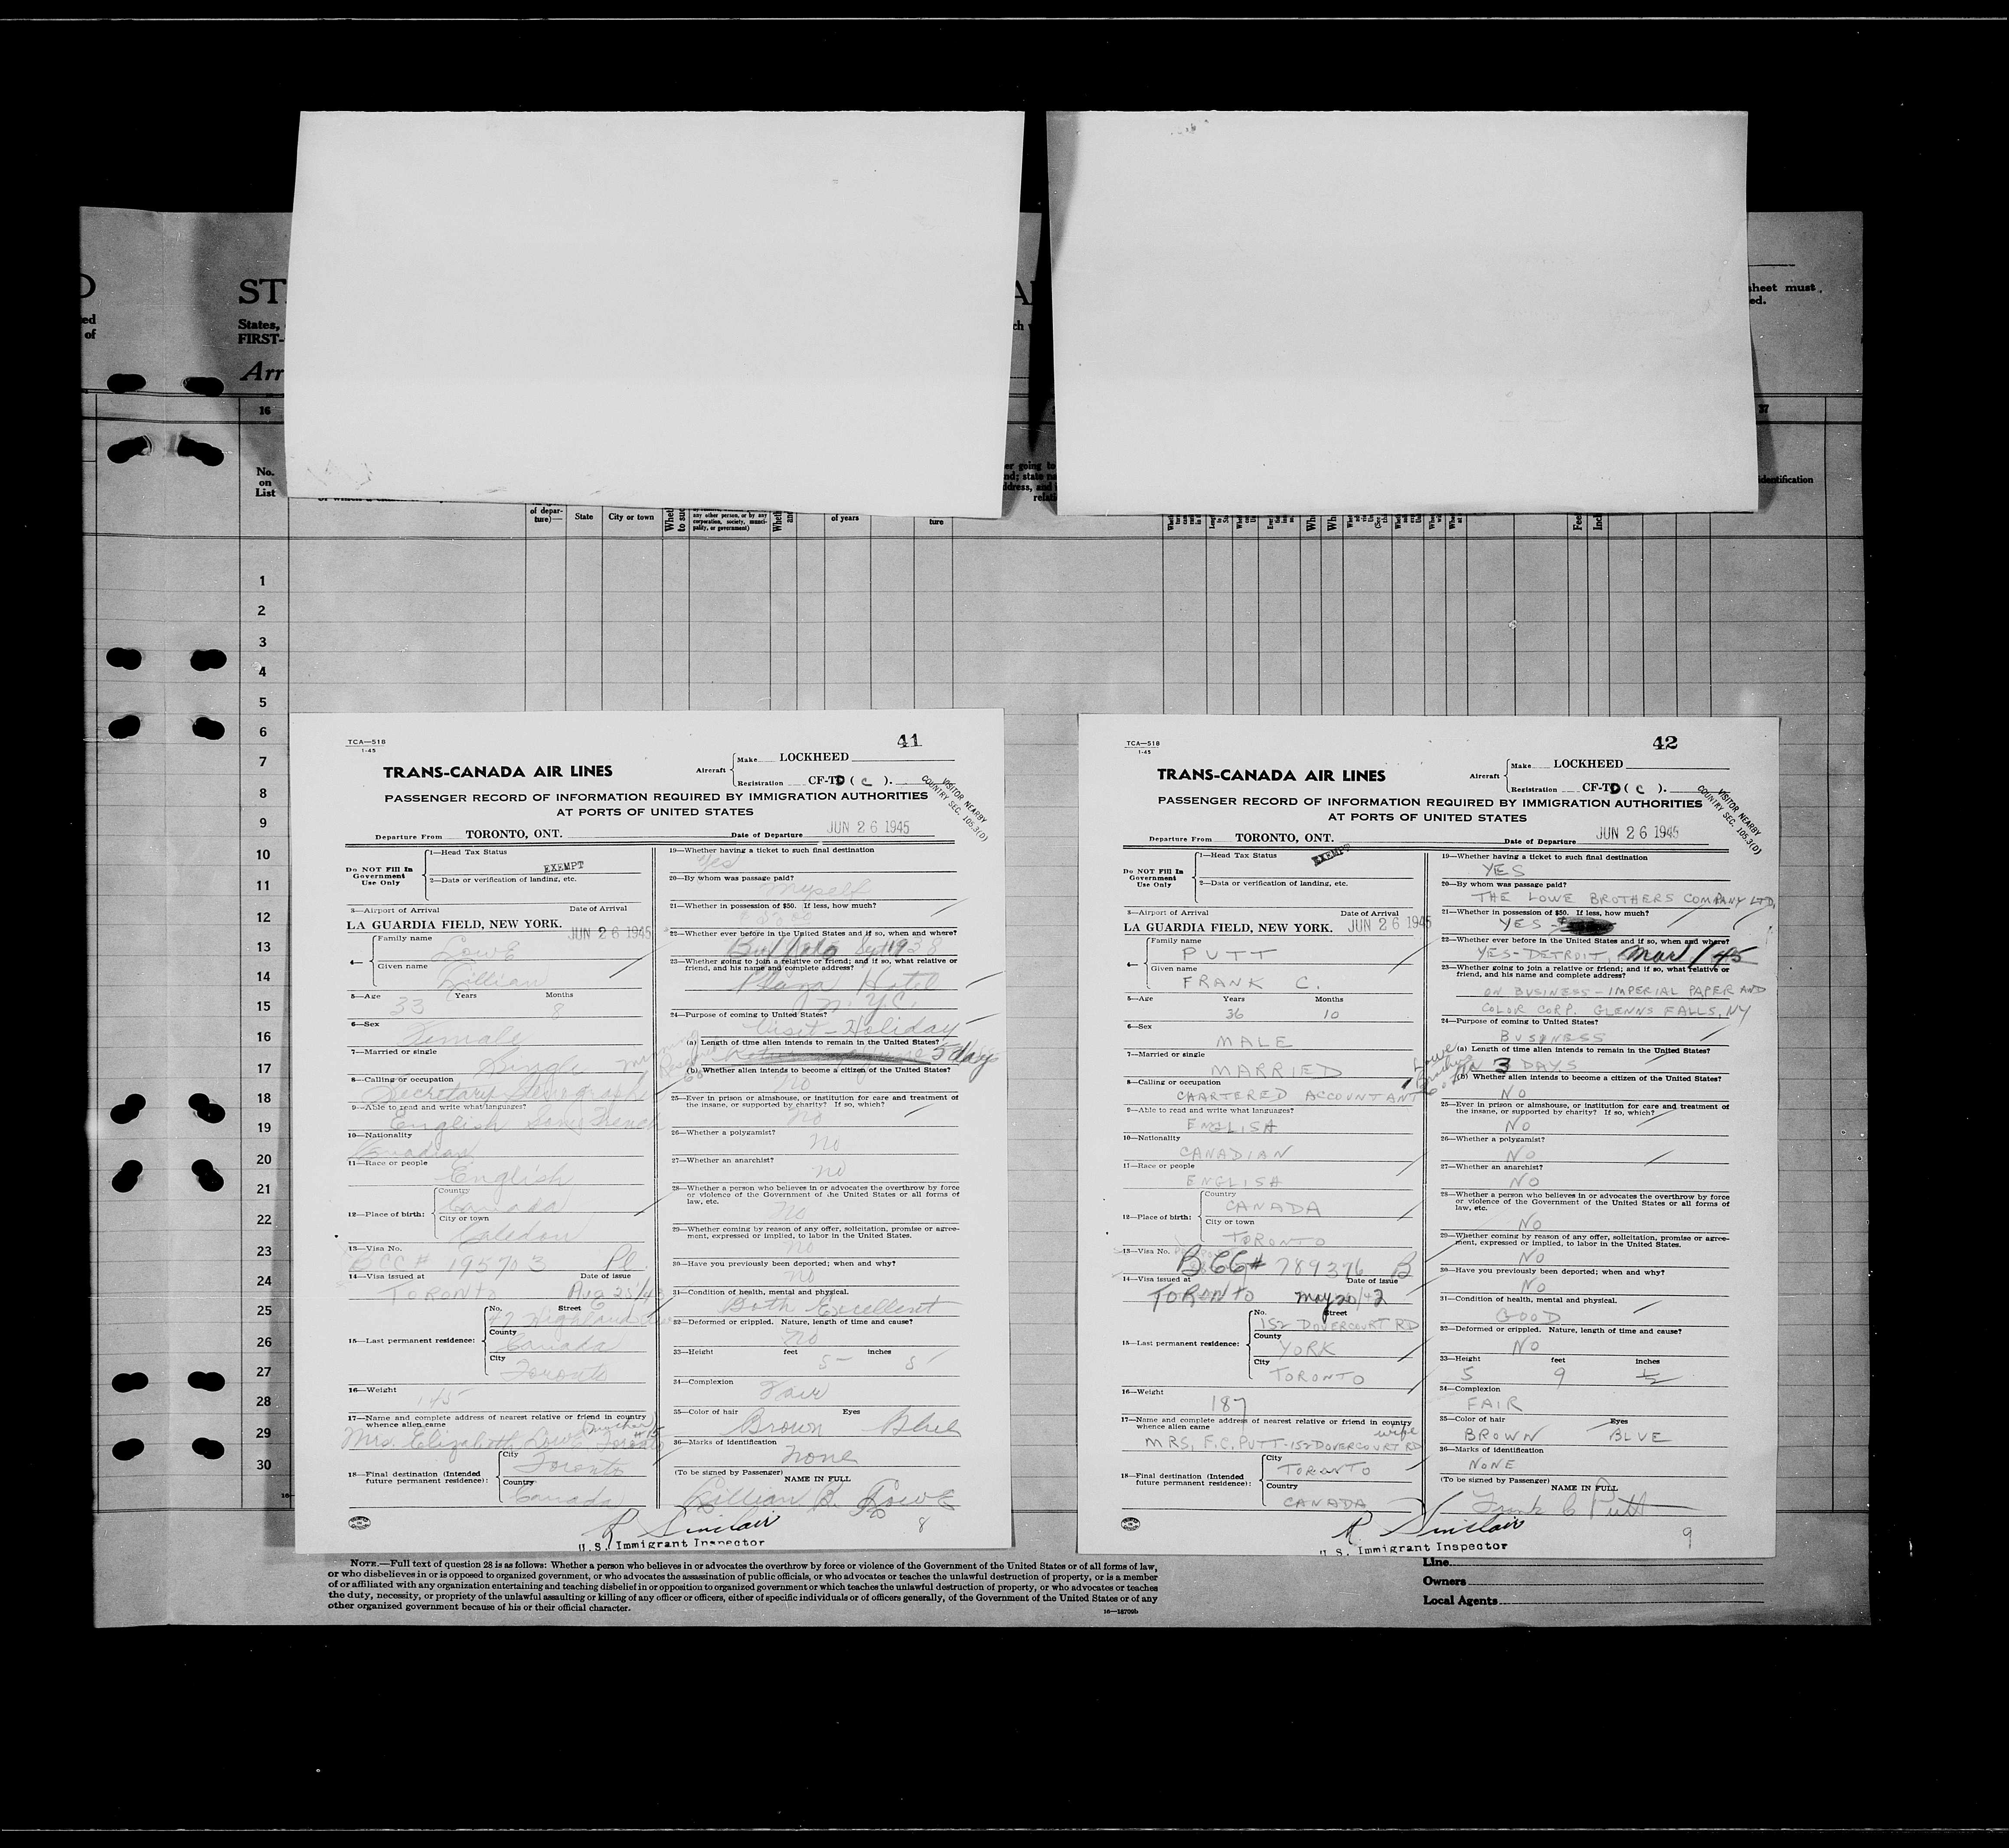 D
ed
of
ST
States,
FIRST-
Arr
ch
sheet must
ed.
16
37
No.
on
List
er going to
nd; state na
ddress, and
relati
identification
of depar-
ture)—
State
City or town
Whet
to suc
any other person, or by any
corporation, society, munici-
pality, or government)
Wheth
and
of years
ture
1
2
3
4
5
6
7
8
9
10
11
12
13
14
15
16
17
18
19
20
21
22
23
24
25
26
27
28
29
30
TCA—518
1-45
41
TRANS-CANADA AIR LINES
Aircraft
Make LOCKHEED
Registration CF-TD ( C ).
VISITOR NEARBY
COUNTRY SEC. 105.3(D)
PASSENGER RECORD OF INFORMATION REQUIRED BY IMMIGRATION AUTHORITIES
AT PORTS OF UNITED STATES
Departure From TORONTO, ONT. Date of Departure JUN 26 1945
Do NOT Fill In
Government
Use Only
1—Head Tax Status
EXEMPT
2—Data or verification of landing, etc.
3—Airport of Arrival Date of Arrival
LA GUARDIA FIELD, NEW YORK. JUN 26 1945
4— Family name
Lowe
Given name
Lillian
5—Age Years Months
33 8
6—Sex
Female
7—Married or single
Single
8—Calling or occupation
Secretary
9—Able to read and write what languages?
English Some French
10—Nationality
Canadian
11—Race or people
English
12—Place of birth: Country
Canada
City or town
Caledon
13—Visa No.
BCC # 195703 Pl.
14—Visa issued at Date of issue
Toronto Aug 25/4
15—Last permanent residence: No. Street
47 Highland
County
Canada
City
Toronto
16—Weight
145
17—Name and complete address of nearest relative or friend in country
whence alien came
Mrs. Elizabeth Lowe (mother) Toronto
18—Final destination (Intended
future permanent residence): City
Toronto
Country
Canada
19—Whether having a ticket to such final destination
Yes
20—By whom was passage paid?
Myself
21—Whether in possession of $50. If less, how much?
22—Whether ever before in the United States and if so, when and where?
Buffalo Sept 1938
23—Whether going to join a relative or friend; and if so, what relative or
friend, and his name and complete address?
Plaza Hotel
N.Y.C.
24—Purpose of coming to United States?
Visit - Holiday
(a) Length of time alien intends to remain in the United States?
5 days
(b) Whether alien intends to become a citizen of the United States?
No
25—Ever in prison or almshouse, or institution for care and treatment of
the insane, or supported by charity? If so, which?
No
26—Whether a polygamist?
No
27—Whether an anarchist?
No
28—Whether a person who believes in or advocates the overthrow by force
or violence of the Government of the United States or all forms of
law, etc.
No
29—Whether coming by reason of any offer, solicitation, promise or agree-
ment, expressed or implied, to labor in the United States.
No
30—Have you previously been deported; when and why?
No
31—Condition of health, mental and physical.
Both Excellent
32—Deformed or crippled. Nature, length of time and cause?
No
33—Height feet inches
5 5
34—Complexion
Fair
35—Color of hair Eyes
Brown Blue
36—Marks of identification
None
(To be signed by Passenger) NAME IN FULL
Lillian B. Lowe
8
R Sinclair
U.S. Immigrant Inspector
TCA—518
1-45
42
TRANS-CANADA AIR LINES
Aircraft
Make LOCKHEED
Registration CF-TD ( C ).
VISITOR NEARBY
COUNTRY SEC. 105.3(D)
PASSENGER RECORD OF INFORMATION REQUIRED BY IMMIGRATION AUTHORITIES
AT PORTS OF UNITED STATES
Departure From TORONTO, ONT. Date of Departure JUN 26 1945
Do NOT Fill In
Government
Use Only
1—Head Tax Status
EXEMPT
2—Data or verification of landing, etc.
3—Airport of Arrival Date of Arrival
LA GUARDIA FIELD, NEW YORK. JUN 26 1945
4— Family name
PUTT
Given name
FRANK C.
5—Age Years Months
36 10
6—Sex
MALE
7—Married or single
MARRIED
8—Calling or occupation
CHARTERED ACCOUNTANT
Lowe
Brothers
Co Ltd
9—Able to read and write what languages?
ENGLISH
10—Nationality
CANADIAN
11—Race or people
ENGLISH
12—Place of birth: Country
CANADA
City or town
TORONTO
13—Visa No.
BCC# 789376 B
14—Visa issued at Date of issue
TORONTO May 20/42
15—Last permanent residence: No. Street
152 DOVERCOURT RD
County
YORK
City
TORONTO
16—Weight
187
17—Name and complete address of nearest relative or friend in country
whence alien came
wife
MRS, F.C. PUTT - 152 DOVERCOURT RD
18—Final destination (Intended
future permanent residence): City
TORONTO
Country
CANADA
19—Whether having a ticket to such final destination
YES
20—By whom was passage paid?
THE LOWE BROTHERS COMPANY LTD.
21—Whether in possession of $50. If less, how much?
YES -
22—Whether ever before in the United States and if so, when and where?
YES - DETROIT, Mar / 45
23—Whether going to join a relative or friend; and if so, what relative or
friend, and his name and complete address?
ON BUSINESS - IMPERIAL PAPER AND
COLOR CORP. GLENNS FALLS, NY
24—Purpose of coming to United States?
BUSINESS
(a) Length of time alien intends to remain in the United States?
3 DAYS
(b) Whether alien intends to become a citizen of the United States?
NO
25—Ever in prison or almshouse, or institution for care and treatment of
the insane, or supported by charity? If so, which?
NO
26—Whether a polygamist?
NO
27—Whether an anarchist?
NO
28—Whether a person who believes in or advocates the overthrow by force
or violence of the Government of the United States or all forms of
law, etc.
NO
29—Whether coming by reason of any offer, solicitation, promise or agree-
ment, expressed or implied, to labor in the United States.
NO
30—Have you previously been deported; when and why?
NO
31—Condition of health, mental and physical.
GOOD
32—Deformed or crippled. Nature, length of time and cause?
NO
33—Height feet inches
5 9 ½
34—Complexion
FAIR
35—Color of hair Eyes
BROWN BLUE
36—Marks of identification
NONE
(To be signed by Passenger) NAME IN FULL
Frank C Putt
9
R Sinclair
U.S. Immigrant Inspector
NOTE.—Full text of question 28 is as follows: Whether a person who believes in or advocates the overthrow by force or violence of the Government of the United States or of all forms of law,
or who disbelieves in or is opposed to organized government, or who advocates the assassination of public officials, or who advocates or teaches the unlawful destruction of property, or is a member
of or affiliated with any organization entertaining and teaching disbelief in or opposition to organized government or which teaches the unlawful destruction of property, or who advocates or teaches
the duty, necessity, or propriety of the unlawful assaulting or killing of any officer or officers, either of specific individuals or of officers generally, of the Government of the United States or of any
other organized government because of his or their official character.
16—18700b
Line
Owners
Local Agents